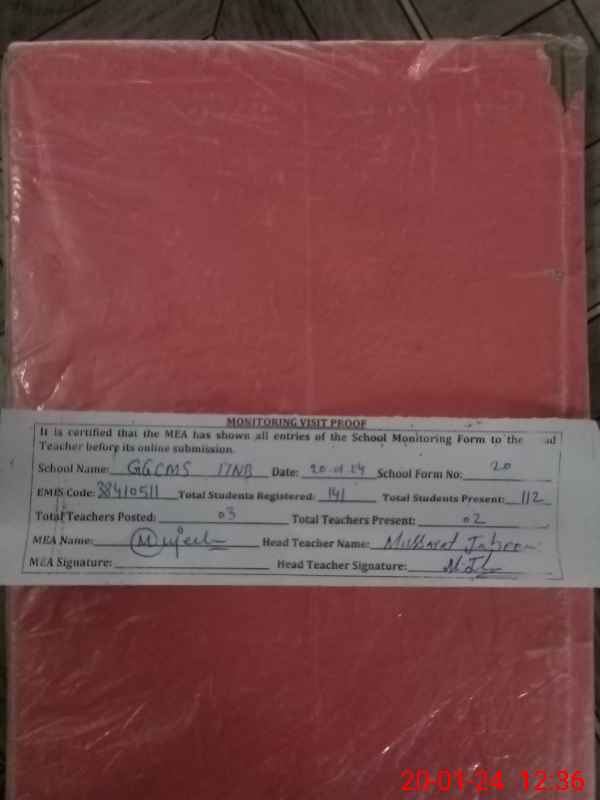 MONITORING VISIT PROOF
It is certified that the MEA has shown all entries of the School Monitoring Form to the ad
Teacher before its online submission.
School Name: GGCMS 17NB Date: 20-01-24 School Form No: 20
EMIS Code: 38410511 Total Students Registered: 141 Total Students Present: 112
Total Teachers Posted: 03 Total Teachers Present: 02
MEA Name: Mujeeb Head Teacher Name: Mussarat
MEA Signature: Head Teacher Signature:
20-01-24 12:36